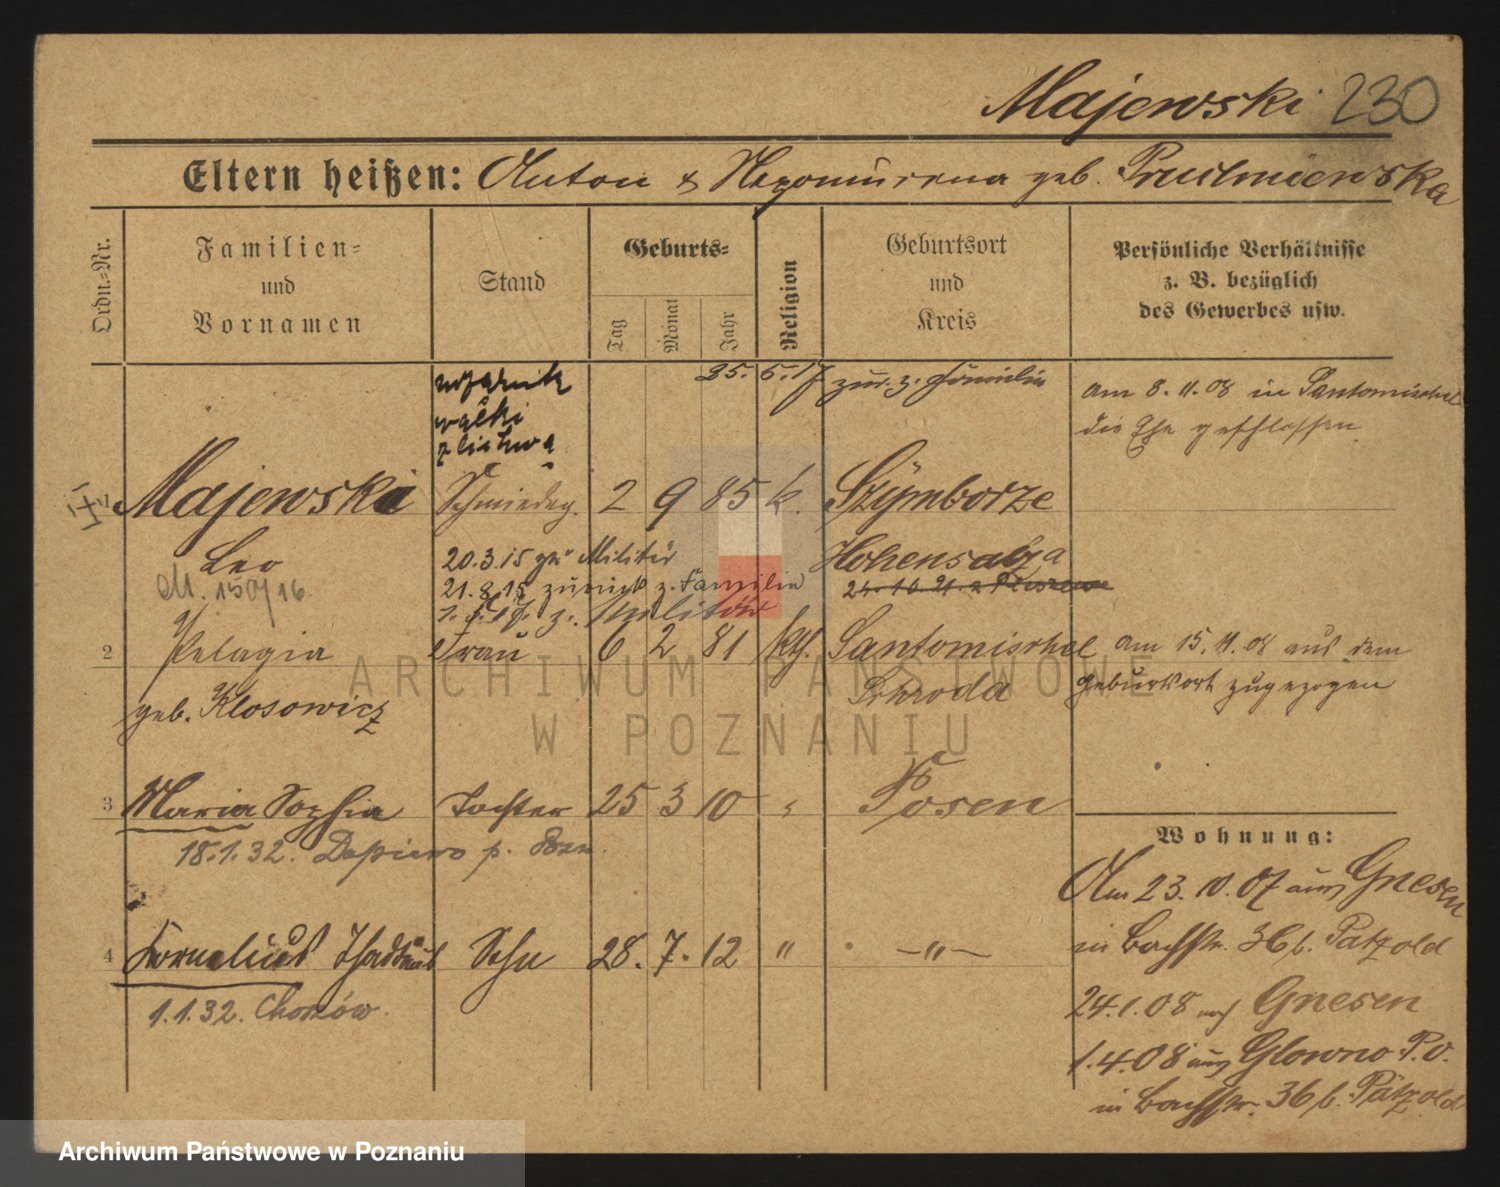 Majewski 230
Eltern heißen: Anton & Nepomucena geb.
Ordn.=Nr.
Familien=
und
Vornamen
Stand
Geburts=
Tag
Monat
Jahr
Religion
Geburtsort
und
Kreis
Persönliche Verhältnisse
z. B. bezüglich
des Gewerbes usw.
25. 5. 17 zur. z. Familie
am 8. 11. 08 in Santomischel
die Ehe geschlossen
Majewski Schmiedeg. 2 9 85 k. Szymborze
Leo
M. 150/16.
20.3.15 zu Militär
Hohensalza
21.8.15 zurück z. Familie
z. Militär
2 Pelagia Frau 6 2 81 kth. Santomischel am 15. 11. 08 aus dem
geb. Klosowicz Schroda Geburtsort zugezogen
3 Maria Sophia Tochter 25 3 10 " Posen
18.1.32.
Wohnung:
Am 23. 10. 07 aus Gnesen
4 Kornelius Thaddäus Sohn 28. 7. 12 " —"—
in Bachstr. 36 b. Patzold
1.1.32. Chorzów.
24.1.08 nach Gnesen
1.4.08 aus Glowno P.O.
in Bachstr. 36 b. Pätzold
ARCHIWUM PAŃSTWOWE
W POZNANIU
Archiwum Państwowe w Poznaniu